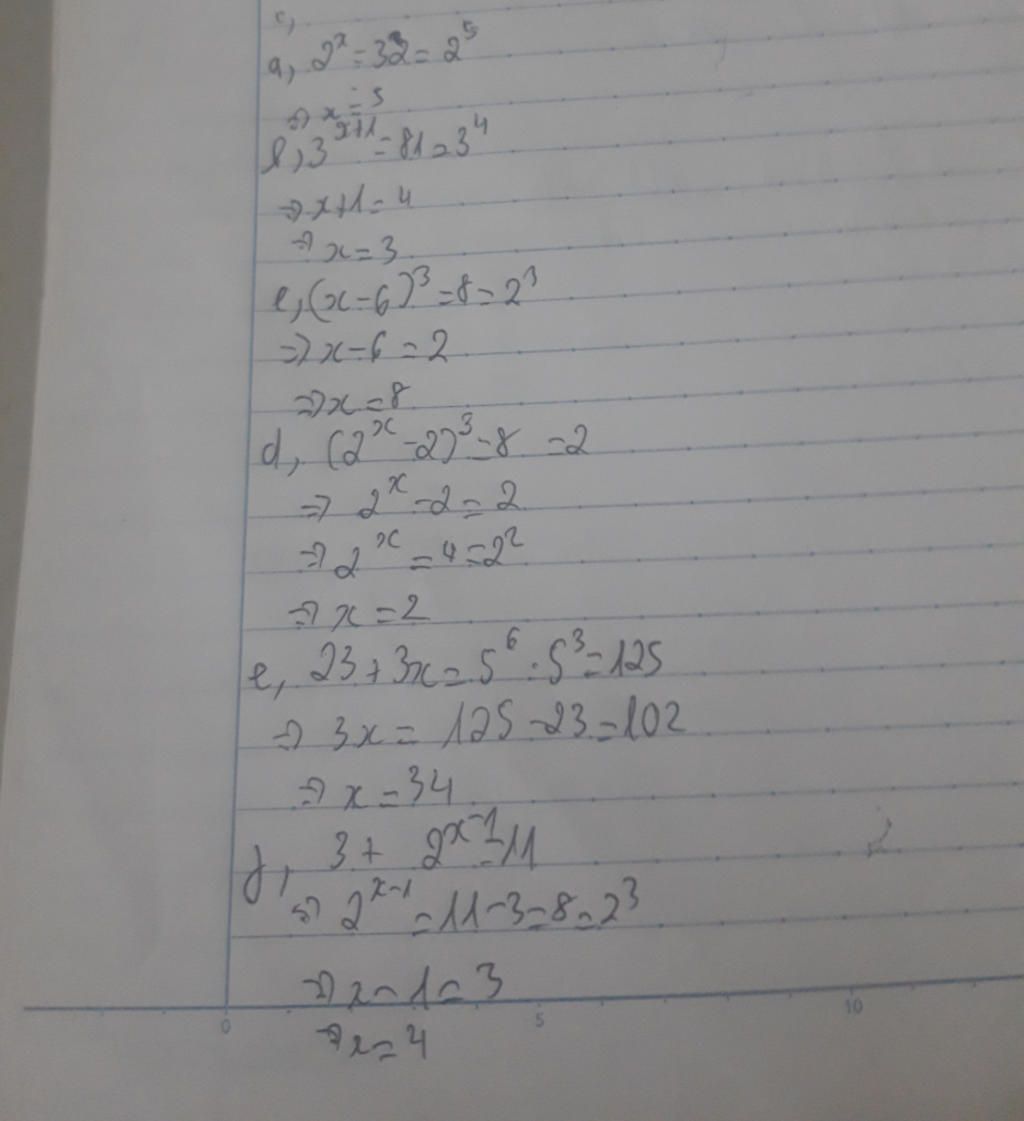 c,
a, 2^x = 32 = 2^5
=> x = 5
b, 3^{x+1} = 81 = 3^4
=> x+1 = 4
=> x = 3
c, (x-6)^3 = 8 = 2^3
=> x-6 = 2
=> x = 8
d, (2^x - 2)^3 = 8 = 2
=> 2^x - 2 = 2
=> 2^x = 4 = 2^2
=> x = 2
e, 23 + 3x = 5^6 : 5^3 = 125
=> 3x = 125 - 23 = 102
=> x = 34
f, 3 + 2^{x-1} = 11
=> 2^{x-1} = 11 - 3 = 8 = 2^3
=> x - 1 = 3
0 5 10
=> x = 4